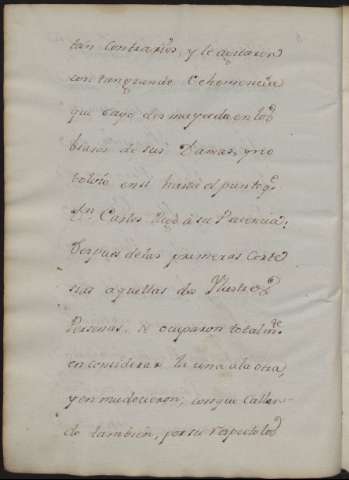 tan contrarios, y le agitaron
con tan grande vehemencia
que cayo desmayada en los
brazos de sus Damas, y no
volvio en si hasta el punto q.e
Dn. Carlos llegò à su Presencia.
Despues de las primeras Corte
sias aquellas dos Ilustres
Personas, se ocuparon totalm.te
en considerar la una a la otra,
y enmudecieron, conque Callan-
do tambien, por su respecto los